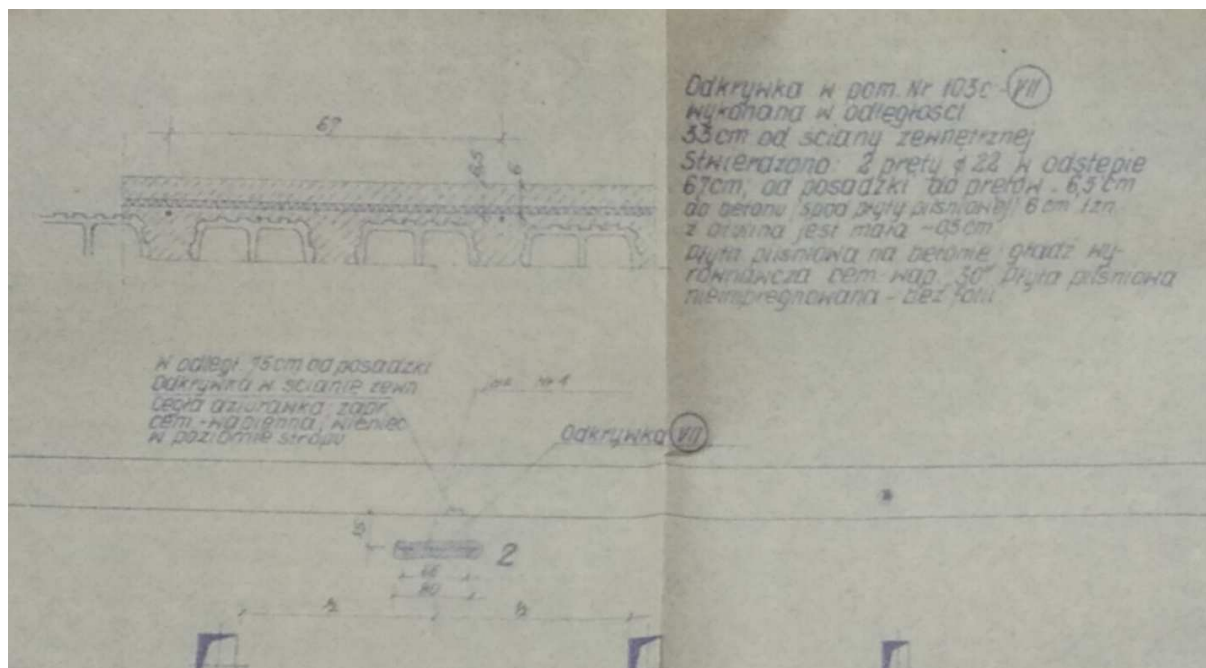 67
6,5
6
Odkrywka w pom. Nr 103c - VII
wykonana w odległości
33 cm od ściany zewnętrznej
Stwierdzono: 2 pręty ϕ 22 w odstępie
67cm, od posadzki do prętów - 6,5 cm
do betonu /spód płyty pilśniowej/ 6 cm tzn.
z otulina jest mała ~0,5 cm
Płyta pilśniowa na betonie gładź wy-
równawcza cem. wap. 30° Płyta pilśniowa
nieimpregnowana - bez folii
w odległ. 15cm od posadzki
Odkrywka w ścianie zewn
Cegła dziurawka, zapr.
cem.-wapienna, wieniec
w poziomie stropu
Nr 1
Odkrywka VII
2
66
80